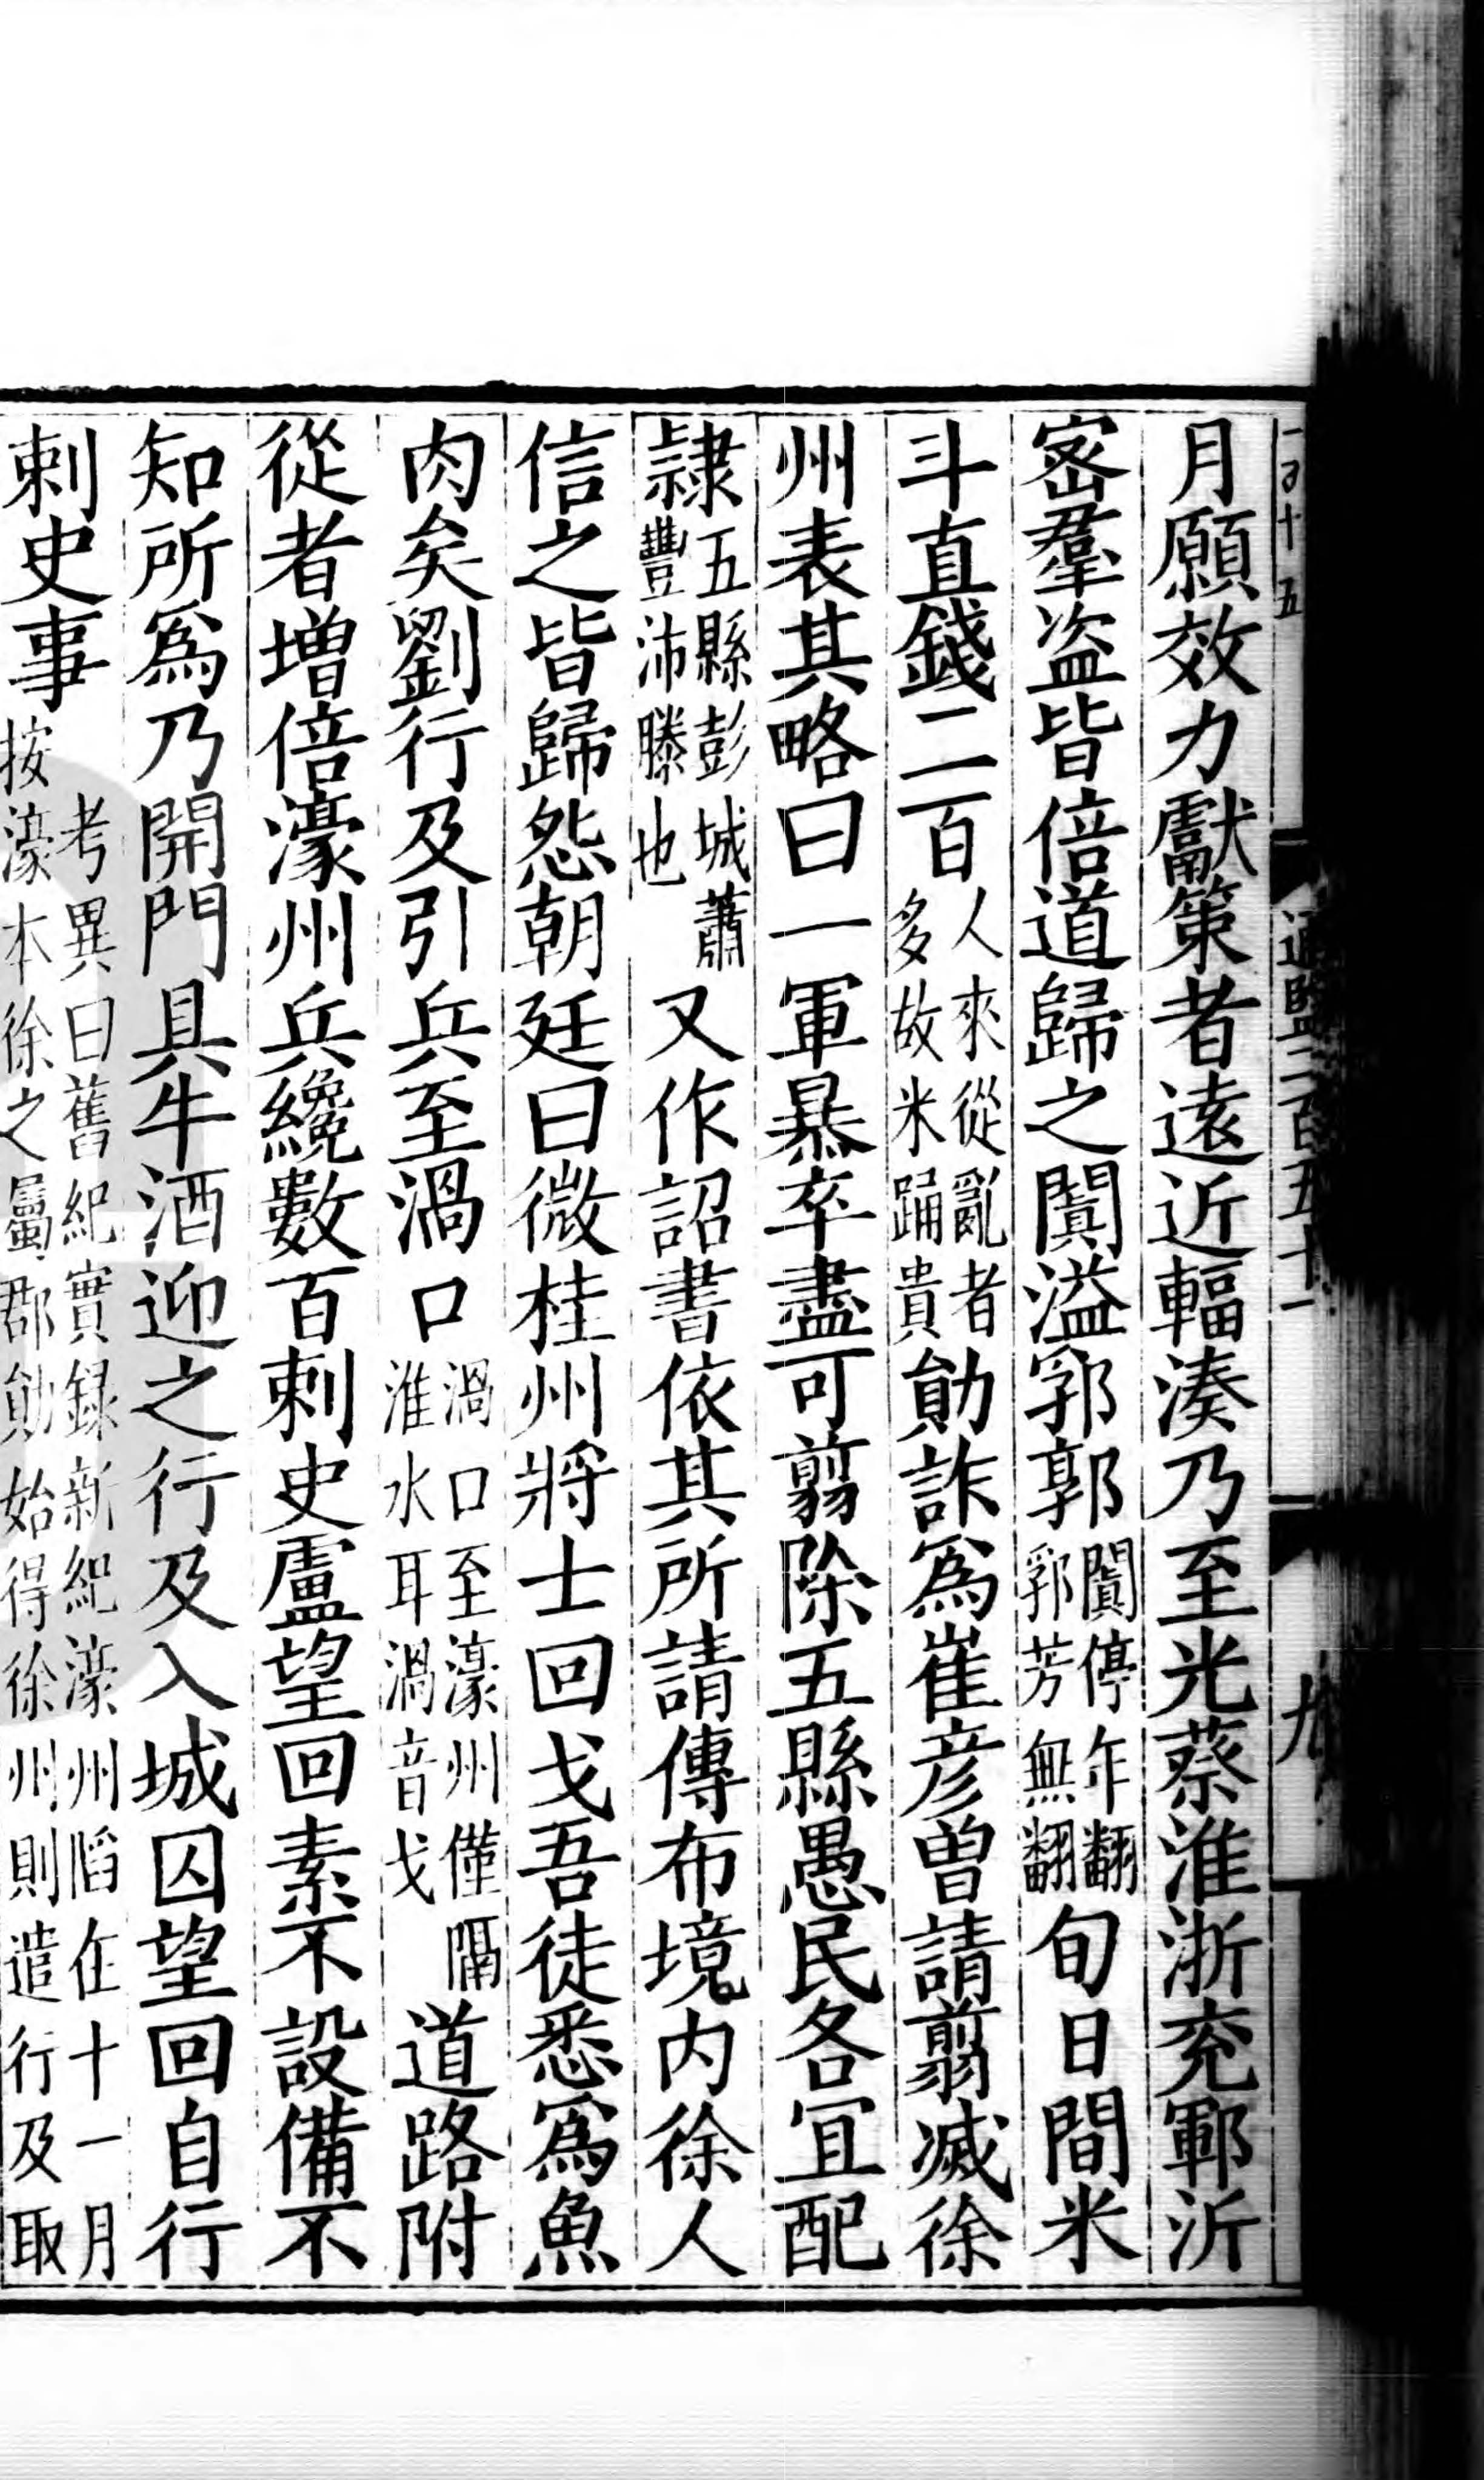 通鑑二百五十一
九
月願效力獻策者遠近輻湊乃至光蔡淮浙兖鄆沂
宻羣盗皆倍道歸之闐溢郛郭闐停年翻郛芳無翻旬日間米
斗直錢二百人來從亂者多故米踊貴勛詐爲崔彦曾請翦滅徐
州表其略曰一軍暴卒盡可翦除五縣愚民各宜配
隷五縣彭城蕭豐沛滕也又作詔書依其所請傳布境内徐人
信之皆歸怨朝廷曰微桂州將士回戈吾徒悉爲魚
肉矣劉行及引兵至渦口渦口至濠州僅隔淮水耳渦音戈道路附
從者增倍濠州兵纔數百刺史盧望回素不設備不
知所爲乃開門具牛酒迎之行及入城囚望回自行
刺史事考異曰舊紀實録新紀濠州陷在十一月按濠本徐之屬郡勛始得徐州則遣行及取